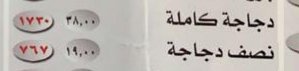 دجاجة كاملة ٣٨,٠٠ ١٧٣٠
نصف دجاجة ١٩,٠٠ ٧٦٧